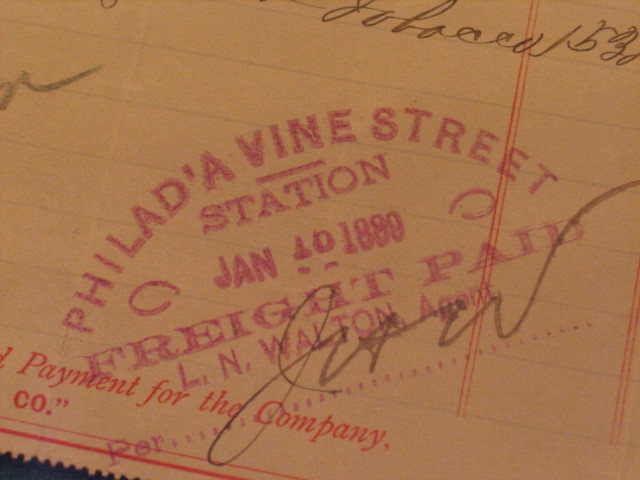 Tobacco 530
PHILAD'A VINE STREET
STATION
JAN 10 1880
FREIGHT PAID
L. N. WALTON, Agent
Payment for the Company,
CO."
Per